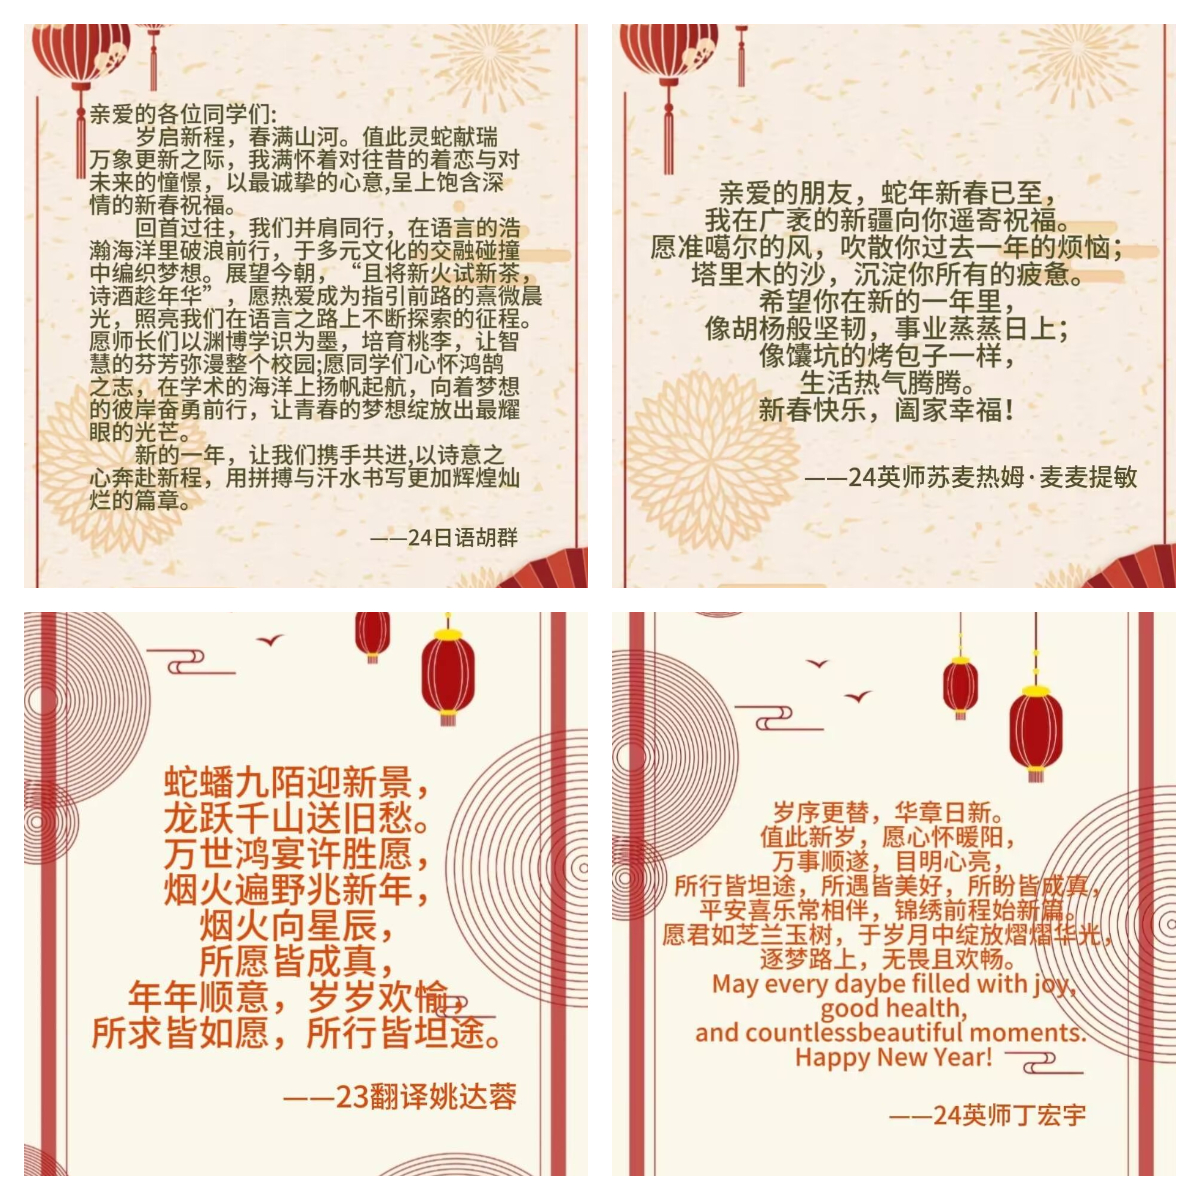 亲爱的各位同学们:
岁启新程，春满山河。值此灵蛇献瑞
万象更新之际，我满怀着对往昔的着恋与对
未来的憧憬，以最诚挚的心意,呈上饱含深
情的新春祝福。
回首过往，我们并肩同行，在语言的浩
瀚海洋里破浪前行，于多元文化的交融碰撞
中编织梦想。展望今朝，“且将新火试新茶，
诗酒趁年华”，愿热爱成为指引前路的熹微晨
光，照亮我们在语言之路上不断探索的征程。
愿师长们以渊博学识为墨，培育桃李，让智
慧的芬芳弥漫整个校园;愿同学们心怀鸿鹄
之志，在学术的海洋上扬帆起航，向着梦想
的彼岸奋勇前行，让青春的梦想绽放出最耀
眼的光芒。
新的一年，让我们携手共进,以诗意之
心奔赴新程，用拼搏与汗水书写更加辉煌灿
烂的篇章。
——24日语胡群
亲爱的朋友，蛇年新春已至，
我在广袤的新疆向你遥寄祝福。
愿准噶尔的风，吹散你过去一年的烦恼；
塔里木的沙，沉淀你所有的疲惫。
希望你在新的一年里，
像胡杨般坚韧，事业蒸蒸日上；
像馕坑的烤包子一样，
生活热气腾腾。
新春快乐，阖家幸福！
——24英师苏麦热姆·麦麦提敏
蛇蟠九陌迎新景，
龙跃千山送旧愁。
万世鸿宴许胜愿，
烟火遍野兆新年，
烟火向星辰，
所愿皆成真，
年年顺意，岁岁欢愉，
所求皆如愿，所行皆坦途。
——23翻译姚达蓉
岁序更替，华章日新。
值此新岁，愿心怀暖阳，
万事顺遂，目明心亮，
所行皆坦途，所遇皆美好，所盼皆成真，
平安喜乐常相伴，锦绣前程始新篇。
愿君如芝兰玉树，于岁月中绽放熠熠华光，
逐梦路上，无畏且欢畅。
May every daybe filled with joy,
good health,
and countlessbeautiful moments.
Happy New Year!
——24英师丁宏宇